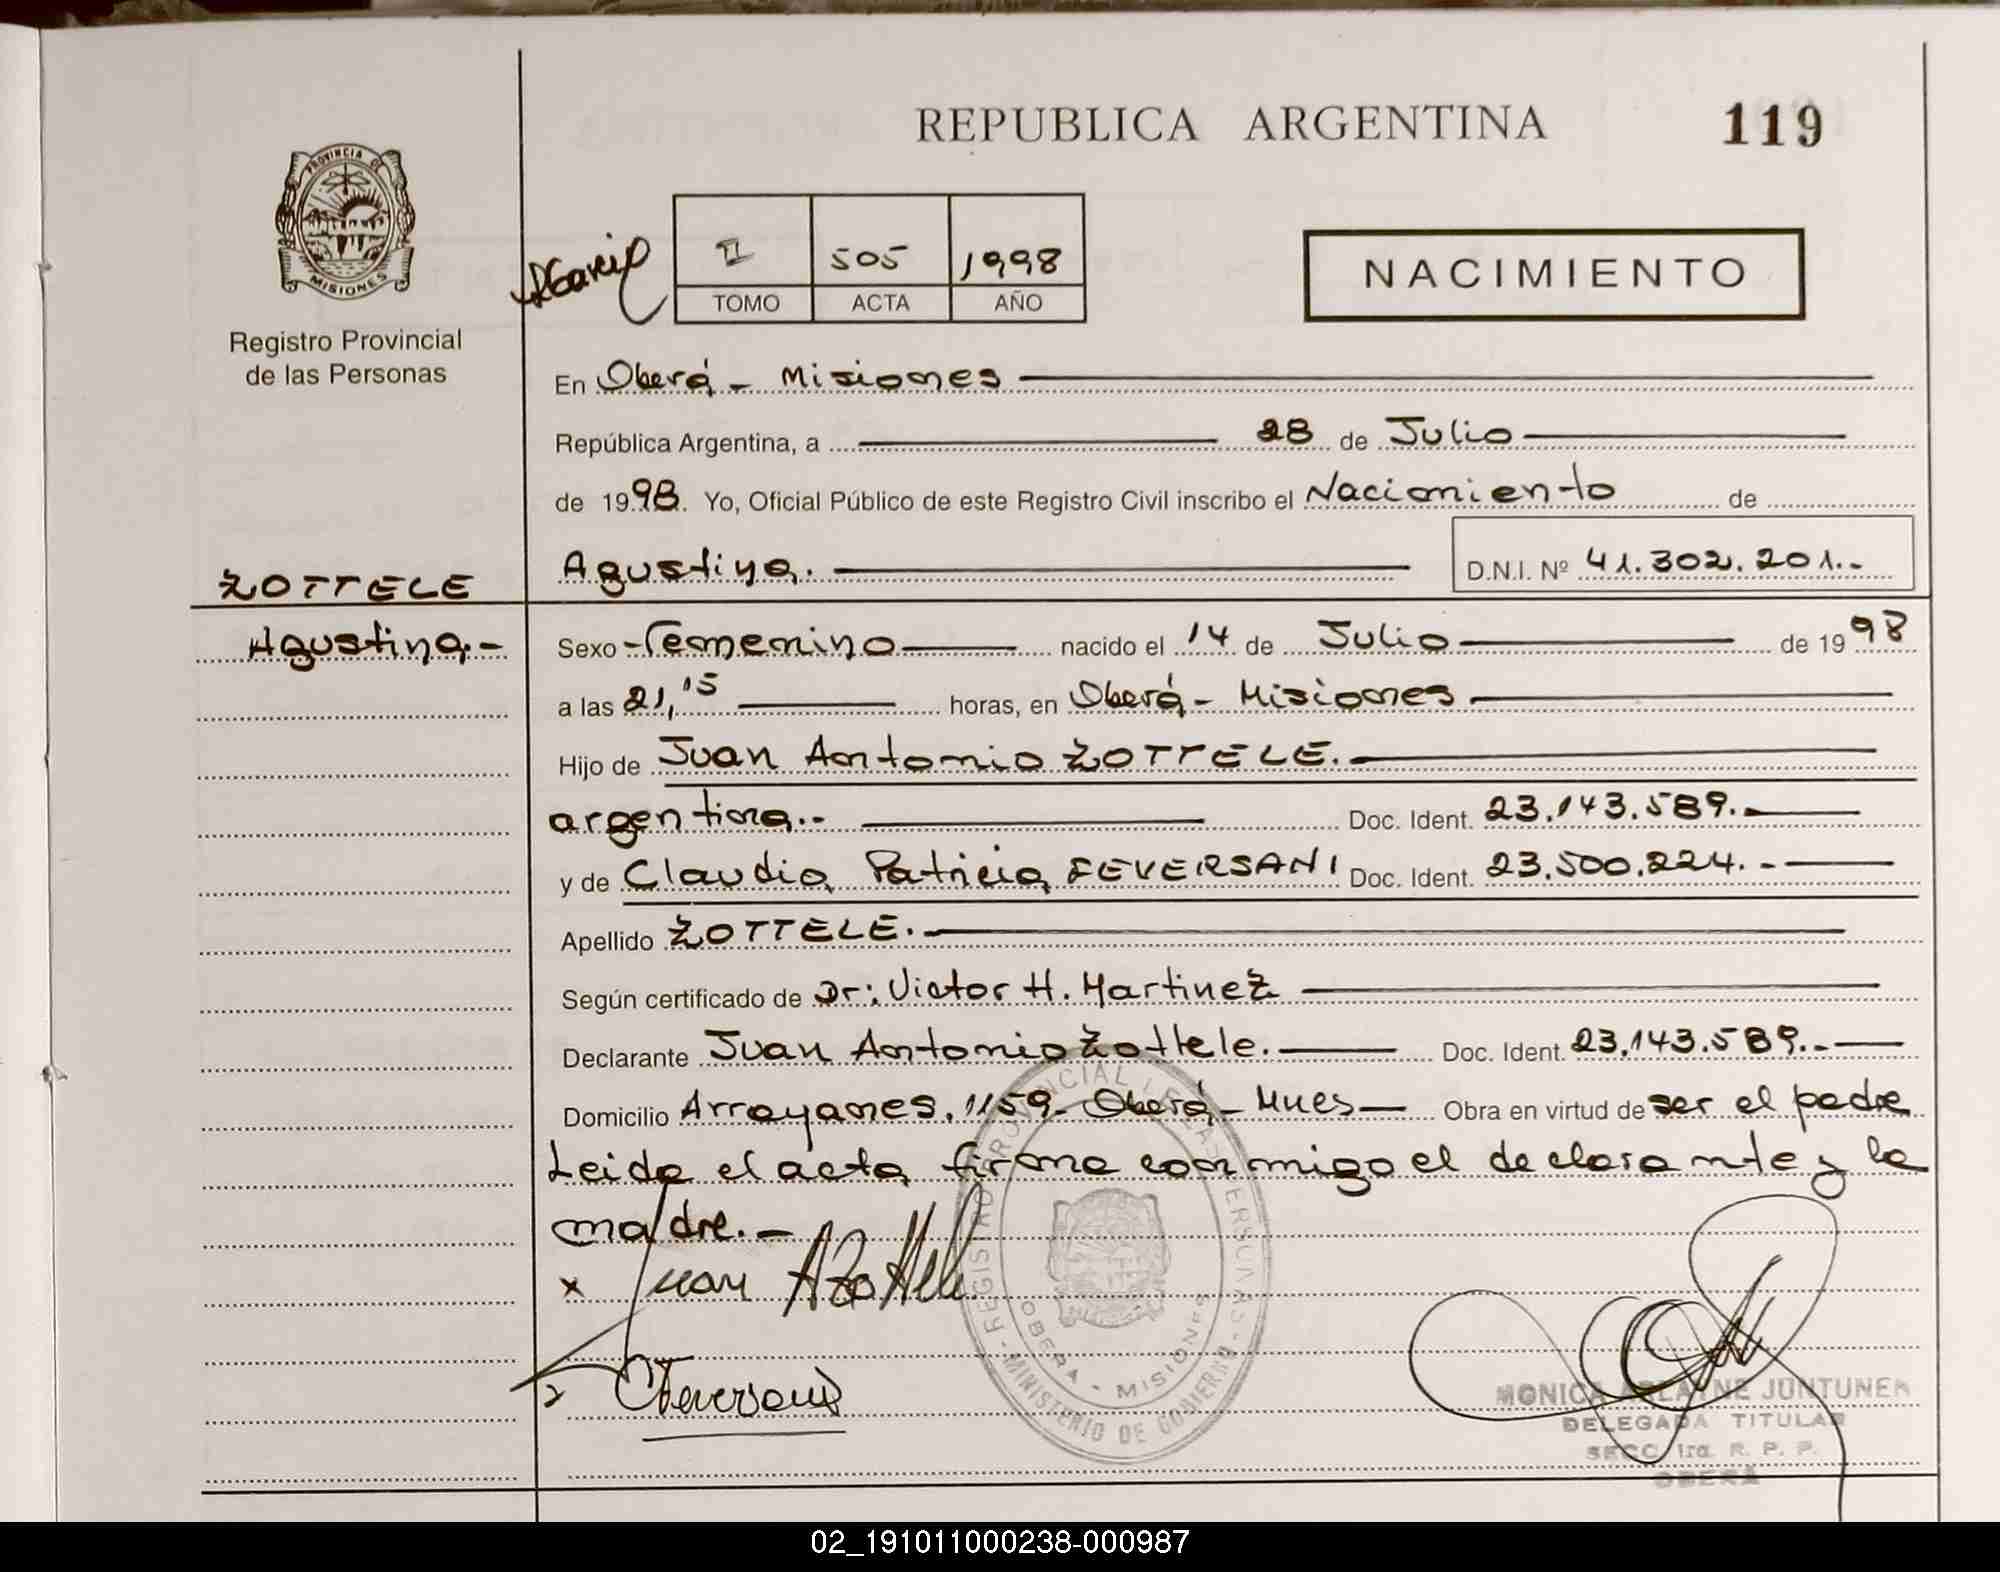 REPUBLICA ARGENTINA
119
PROVINCIA DE
MISIONES
Registro Provincial
de las Personas
II 505 1998
TOMO ACTA AÑO
NACIMIENTO
En Oberá - Misiones
República Argentina, a 28 de Julio
de 1998. Yo, Oficial Público de este Registro Civil inscribo el Nacimiento de
Agustina. D.N.I. Nº 41.302.201.-
ZOTTELE
Agustina.-
Sexo - Femenino nacido el 14 de Julio de 1998
a las 21,15 horas, en Oberá - Misiones
Hijo de Juan Antonio ZOTTELE.
argentina.- Doc. Ident. 23.143.589.
y de Claudia Patricia FEVERSANI Doc. Ident. 23.500.224.-
Apellido ZOTTELE.
Según certificado de Dr: Victor H. Martinez
Declarante Juan Antonio Zottele. Doc. Ident. 23.143.589.-
Domicilio Arrayanes. 1159- Oberá - Mnes Obra en virtud de ser el padre
Leida el acta firma conmigo el declarante y la
madre.-
x Juan A Zottele
CFeversani
REGISTRO PROVINCIAL DE LAS PERSONAS - MINISTERIO DE GOBIERNO
OBERA - MISIONES
MONICA ARLAYNE JUNTUNEN
DELEGADA TITULAR
SECC. 1ra. R. P. P.
OBERÁ
02_191011000238-000987